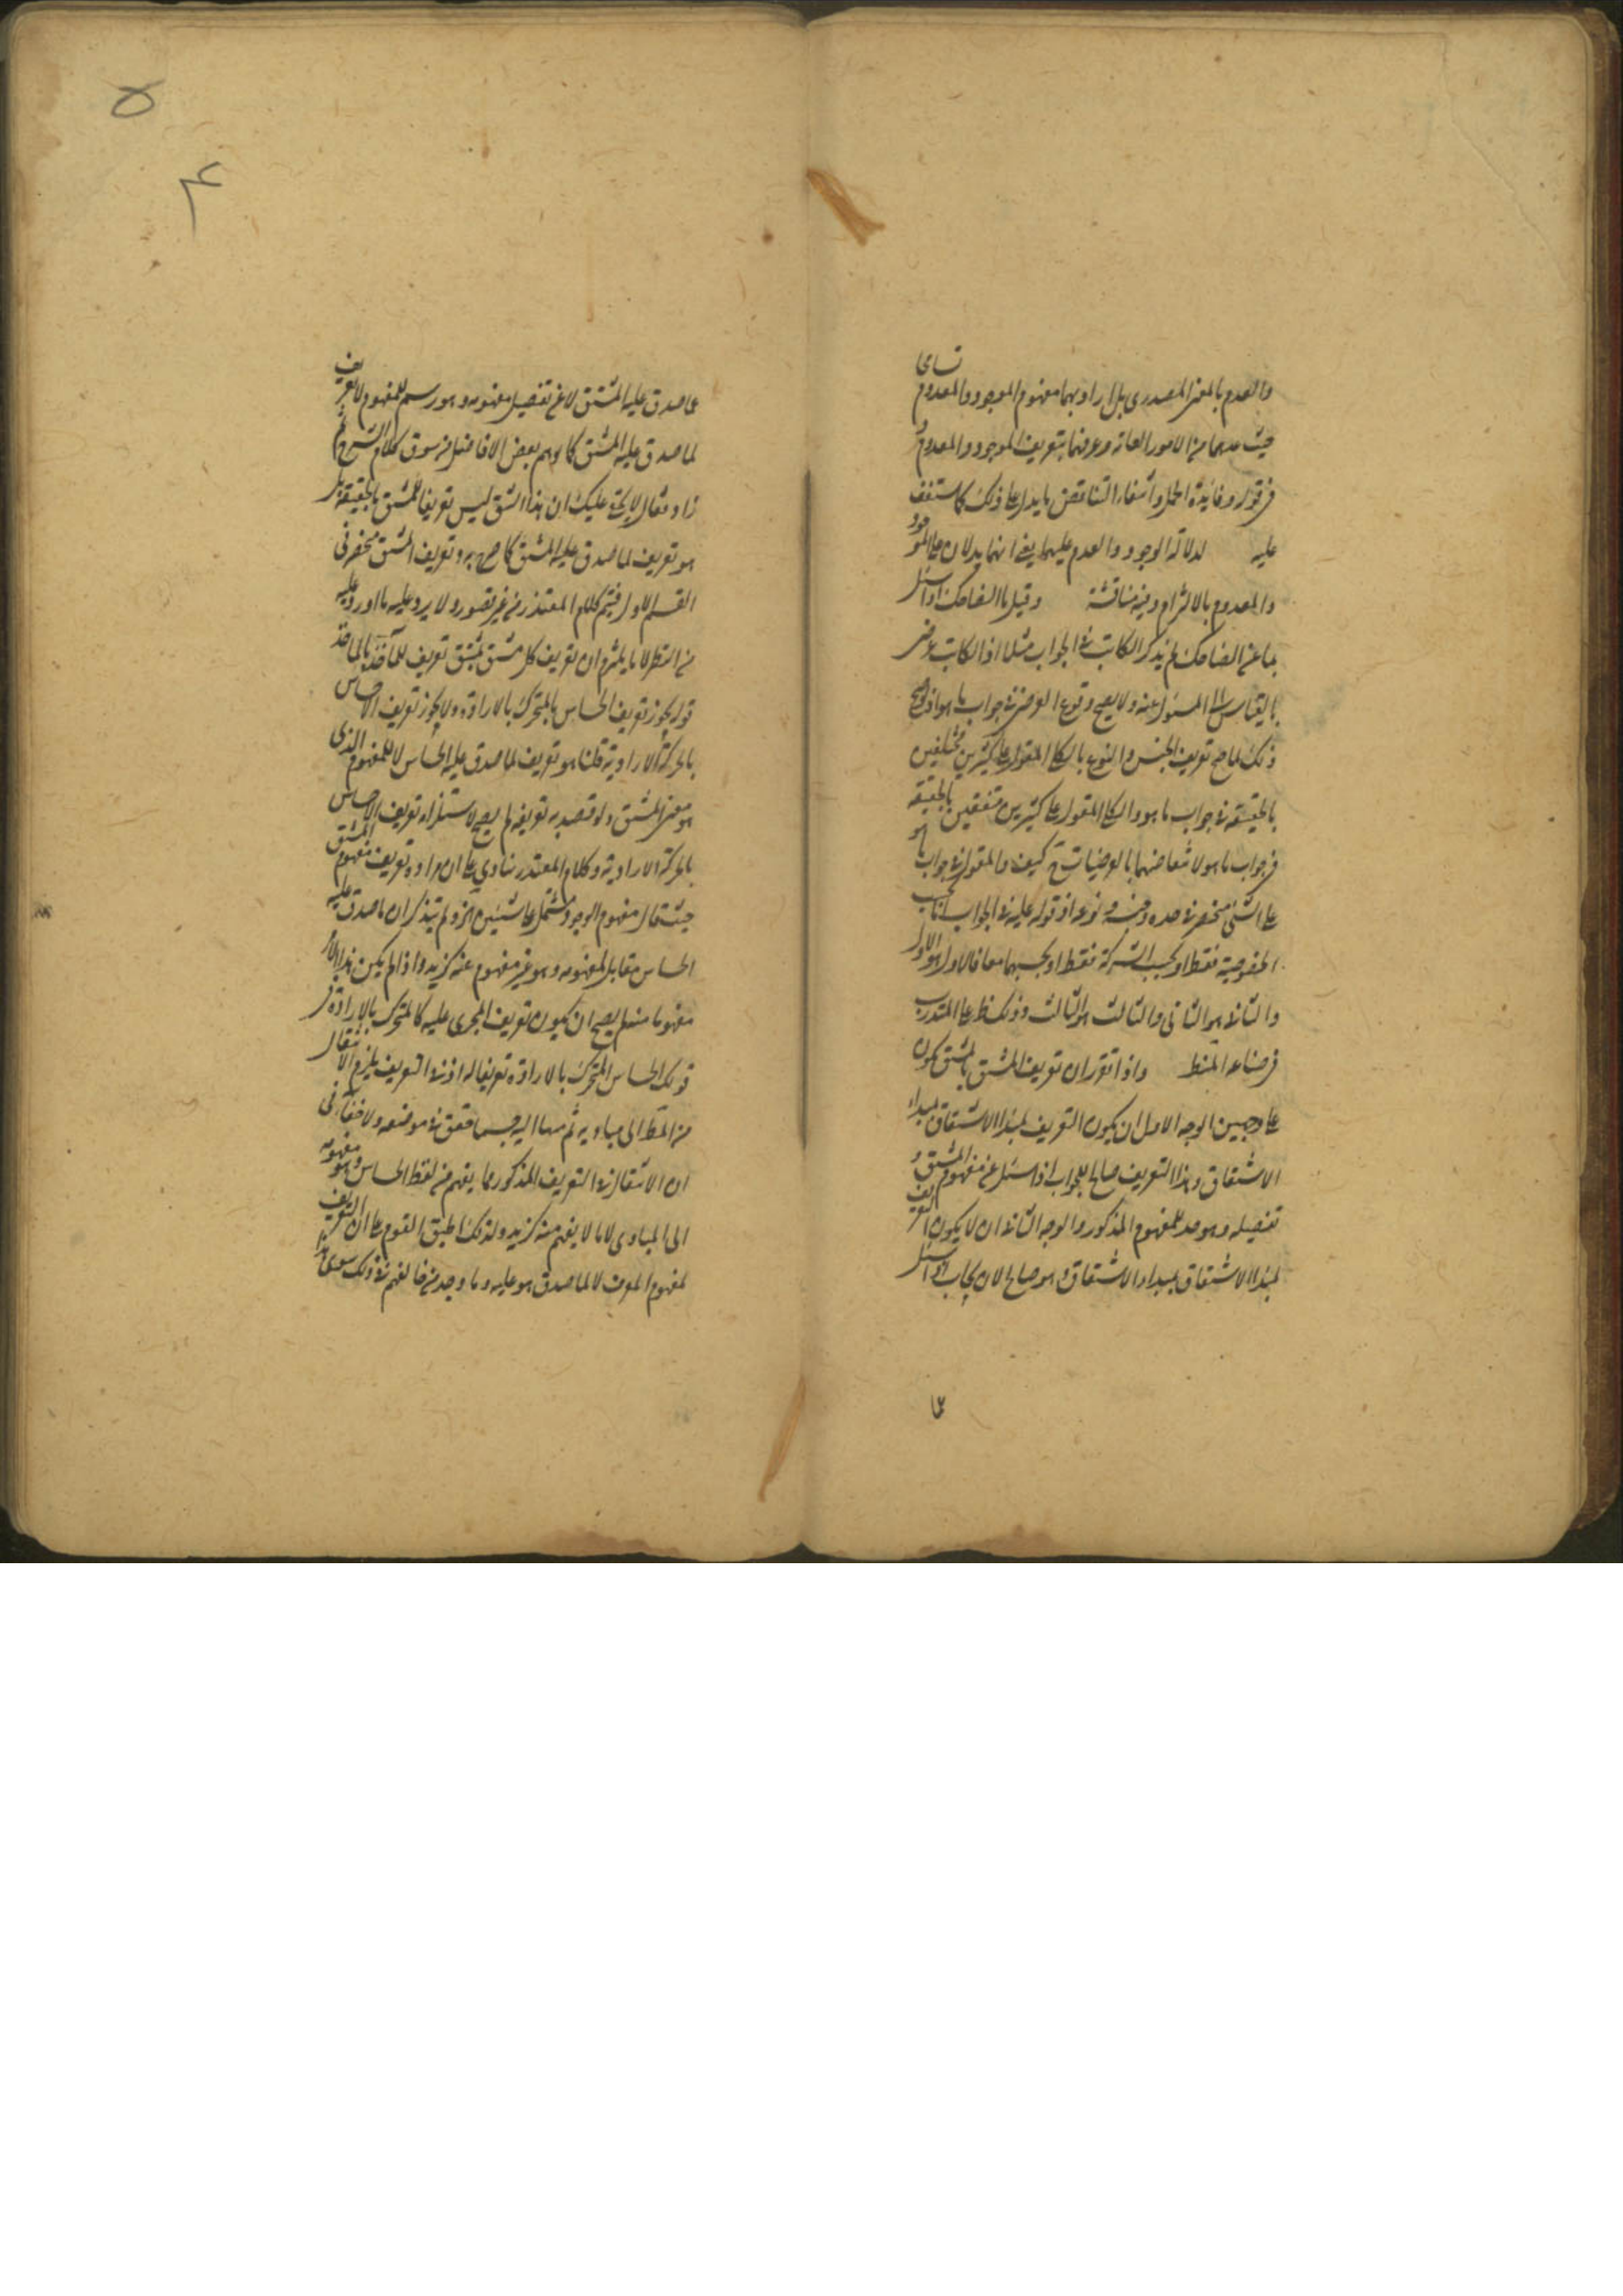 والعدم بالمعنى المصدرى بل اراد بهما مفهوم الموجود والمعدوم تسامحا
حيث عدهما من الامور العامة وعرفهما بتعريف الموجود والمعدوم و
فى قوله وفائدة الحمل وانتفاء التناقض ما يدل على ذلك كما ستقف
عليه لدلالة الوجود والعدم عليهما يعنى انهما يدلان على الموجود
والمعدوم بالالتزام وفيه مناقشة وقيل ما الضاحك اذا سئل
بما عن الضاحك لم يذكر الكاتب فى الجواب مثلا اذ الكاتب عرضى
بالقياس الى المسئول عنه ولا يصح وقوع العرضى فى جواب ما هو اذ لو صح
ذلك لما صح تعريف الجنس والنوع بالكلى المقول على كثيرين مختلفين
بالحقيقة فى جواب ما هو والكلى المقول على كثيرين متفقين بالحقيقة
فى جواب ما هو لانتقاضهما بالعرضيات ح كيف والمقول فى جواب ما هو
على الشئ منحصر فى حده وجنسه ونوعه اذ قوله عليه فى الجواب اما بحسب
الخصوصية فقط او بحسب الشركة فقط او بحسبهما معا فالاول هو الاول
والثانى هو الثانى والثالث هو الثالث وذلك ظ على المتدرب
فى صناعة المنطق واذا تقرر ان تعريف المشتق بالمشتق يكون
على وجهين الوجه الاول ان يكون التعريف لمبدأ الاشتقاق بمبداء
الاشتقاق وهذا التعريف صالح للجواب اذا سئل عن مفهوم المشتق و
تفصيله وهو حد للمفهوم المذكور والوجه الثانى ان لا يكون التعريف
لمبدأ الاشتقاق بمبداء الاشتقاق وهو صالح لان يجاب اذا سئل
عما
۵
۴
عما صدق عليه المشتق لا عن تفصيل مفهومه وهو رسم للمفهوم لا تعريف
لما صدق عليه المشتق كما توهم بعض الافاضل من سوق كلام الشرح ثم
زاد وقال لا يخفى عليك ان هذا الشق ليس تعريفا للمشتق بالحقيقة بل
هو تعريف لما صدق عليه المشتق كما صرح به وتعريف المشتق منحصر فى
القسم الاول فيتم كلام المعتذر من غير قصور ولا يرد عليه ما اورد عليه
من النظر لا ما يلزم ان تعريف كل مشتق بمشتق تعريف للمأخذ بالمأخذ
قوله يجوز تعريف الحساس بالمتحرك بالارادة ولا يجوز تعريف الاحساس
بالحركة الارادية قلنا هو تعريف لما صدق عليه الحساس لا للمفهوم الذى
هو معنى المشتق ولو قصد به تعريفه لم يصح لاستلزامه تعريف الاحساس
بالحركة الارادية وكلام المعتذر ينادى على ان مراده تعريف مفهوم المشتق
حيث قال مفهوم الوجود مشتمل على شيئين الخ ولم يتذكر ان ما صدق عليه
الحساس مقابل لمفهومه وهو غير مفهوم عنه كزيد واذا لم يكن هذا الامر
مفهوما منه لم يصح ان يكون تعريف المجرى عليه كالمتحرك بالارادة فى
قولك الحساس المتحرك بالارادة تعريفا له اذ فى التعريف يلزم الانتقال
من المط الى مباديه ثم منها اليه حسبما حقق فى موضعه ولا خفاء فى
ان الانتقال فى التعريف المذكور مما يفهم من لفظ الحساس وهو مفهومه
الى المبادى لا ما لا يفهم منه كزيد ولذلك اطبق القوم على ان التعريف
لمفهوم المعرف لا لما صدق هو عليه وما وجد من خالفهم فى ذلك سوى هذا